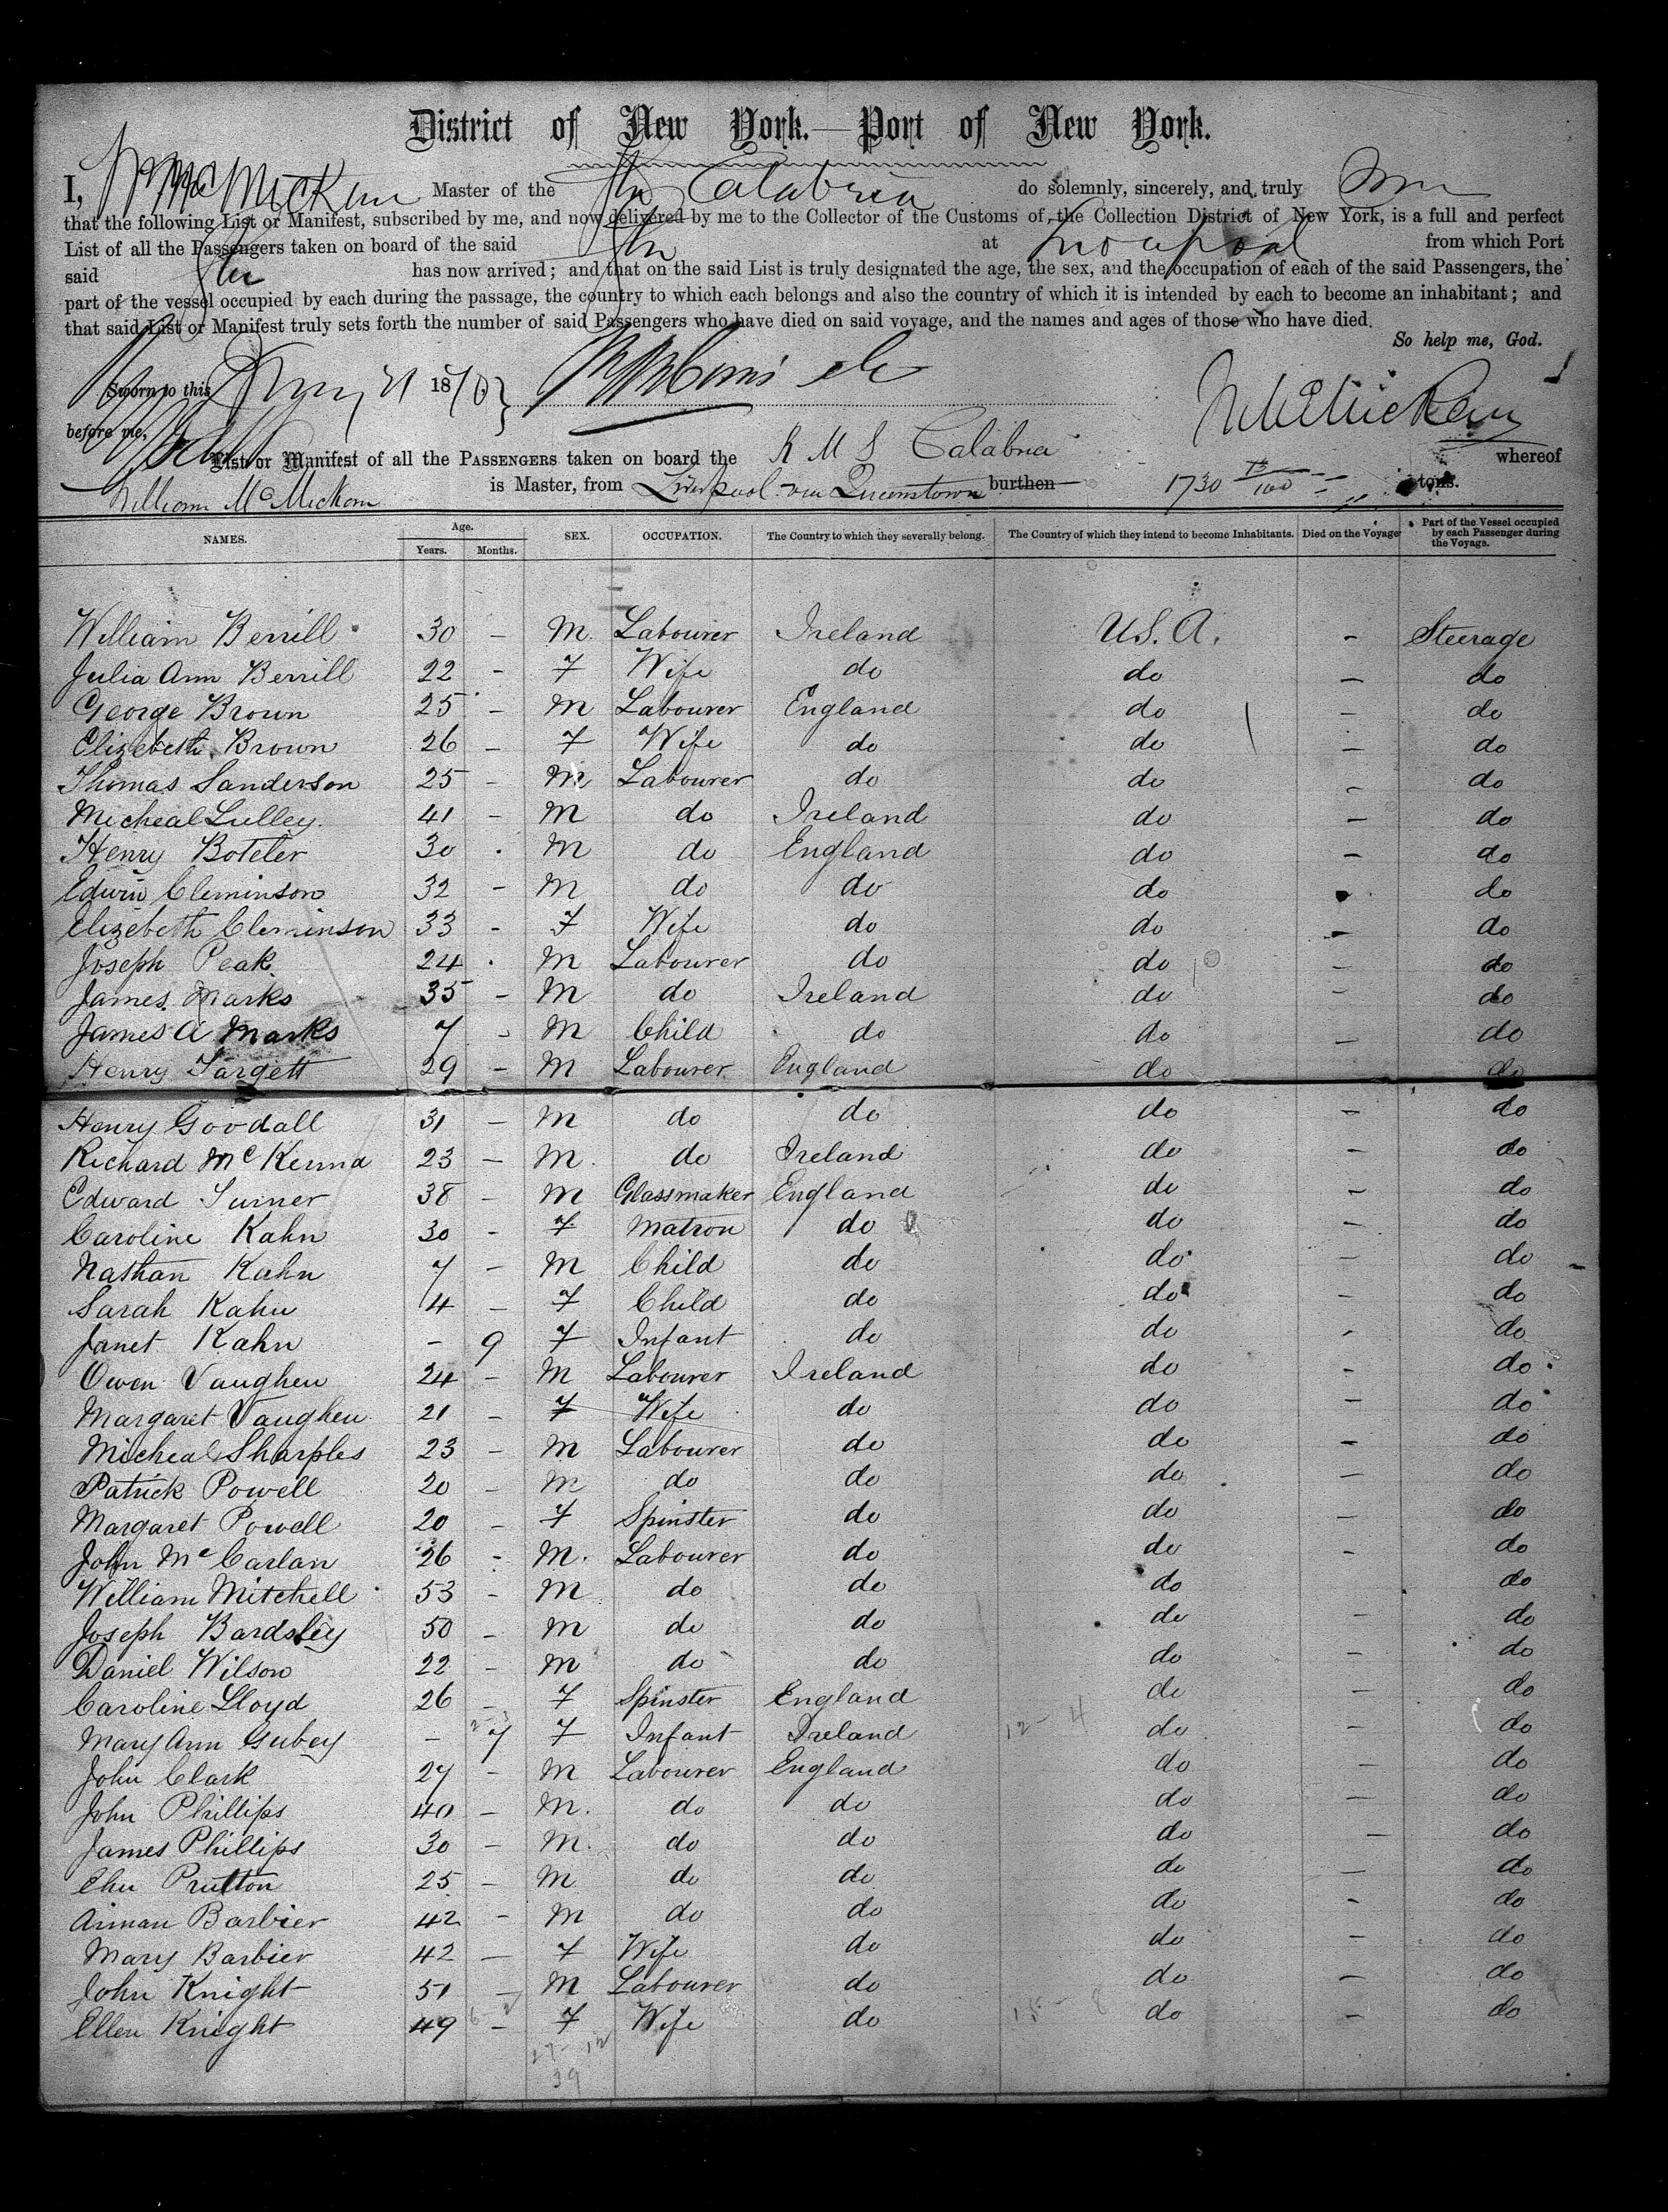 District of New York.—Port of New York.
I, Wm McMicken Master of the Str Calabria do solemnly, sincerely, and truly swear
that the following List or Manifest, subscribed by me, and now delivered by me to the Collector of the Customs of the Collection District of New York, is a full and perfect
List of all the Passengers taken on board of the said Str at Liverpool from which Port
said Str has now arrived; and that on the said List is truly designated the age, the sex, and the occupation of each of the said Passengers, the
part of the vessel occupied by each during the passage, the country to which each belongs and also the country of which it is intended by each to become an inhabitant; and
that said List or Manifest truly sets forth the number of said Passengers who have died on said voyage, and the names and ages of those who have died.
So help me, God.
Sworn to this 21 18
before me, W McMicken
List or Manifest of all the PASSENGERS taken on board the R M S Calabria whereof
William McMickan is Master, from Liverpool via Queenstown burthen 1730 73/100 tons.
NAMES. Age. Years. Months. SEX. OCCUPATION. The Country to which they severally belong. The Country of which they intend to become Inhabitants. Died on the Voyage Part of the Vessel occupied by each Passenger during the Voyage.
William Berrill 30 – M. Labourer Ireland U.S.A. – Steerage
Julia Ann Berrill 22 – F Wife do do – do
George Brown 25 – M Labourer England do – do
Elizebeth Brown 26 – F Wife do do – do
Thomas Sanderson 25 – M Labourer do do – do
Micheal Lulley 41 – M do Ireland do – do
Henry Boteler 30 . M do England do – do
Edwin Cleminson 32 – M do do do – do
Elizebeth Cleminson 33 – F Wife do do – do
Joseph Peak 24 . M Labourer do do – do
James Marks 35 – M do Ireland do – do
James A Marks 7 – M Child do do – do
Henry Targett 29 – M Labourer England do do
Henry Goodall 31 – M do do do – do
Richard Mc 23 – M. do Ireland do – do
Edward Turner 38 – M Glassmaker England do – do
Caroline Kahn 30 – F Matron do do – do
Nathan Kahn 7 – M Child do do – do
Sarah Kahn 4 – F Child do do – do
Janet Kahn – 9 F Infant do do – do
Owen Vaughen 24 – M Labourer Ireland do – do
Margaret Vaughen 21 – F Wife do do – do
Micheal Sharples 23 – M Labourer do do – do
Patrick Powell 20 – M do do do – do
Margaret Powell 20 – F Spinster do do – do
John Mc Carlan 26 – M. Labourer do do – do
William Mitchell 53 – M do do do do
Joseph Bardsley 50 – M do do do – do
Daniel Wilson 22 – M do do do – do
Caroline Lloyd 26 – F Spinster England do – do
Mary Ann Gubey – 7 F Infant Ireland 12 – 4 do – do
John Clark 27 – M Labourer England do – do
John Phillips 40 – M. do do do – do
James Phillips 30 – M. do do do – do
Prutton 25 – M do do do – do
Barbier 42 – M do do do – do
Mary Barbier 42 – F Wife do do – do
John Knight 51 – M Labourer do do – do
Ellen Knight 49 – F Wife do 15 – 8 do – do
27 – 12
39